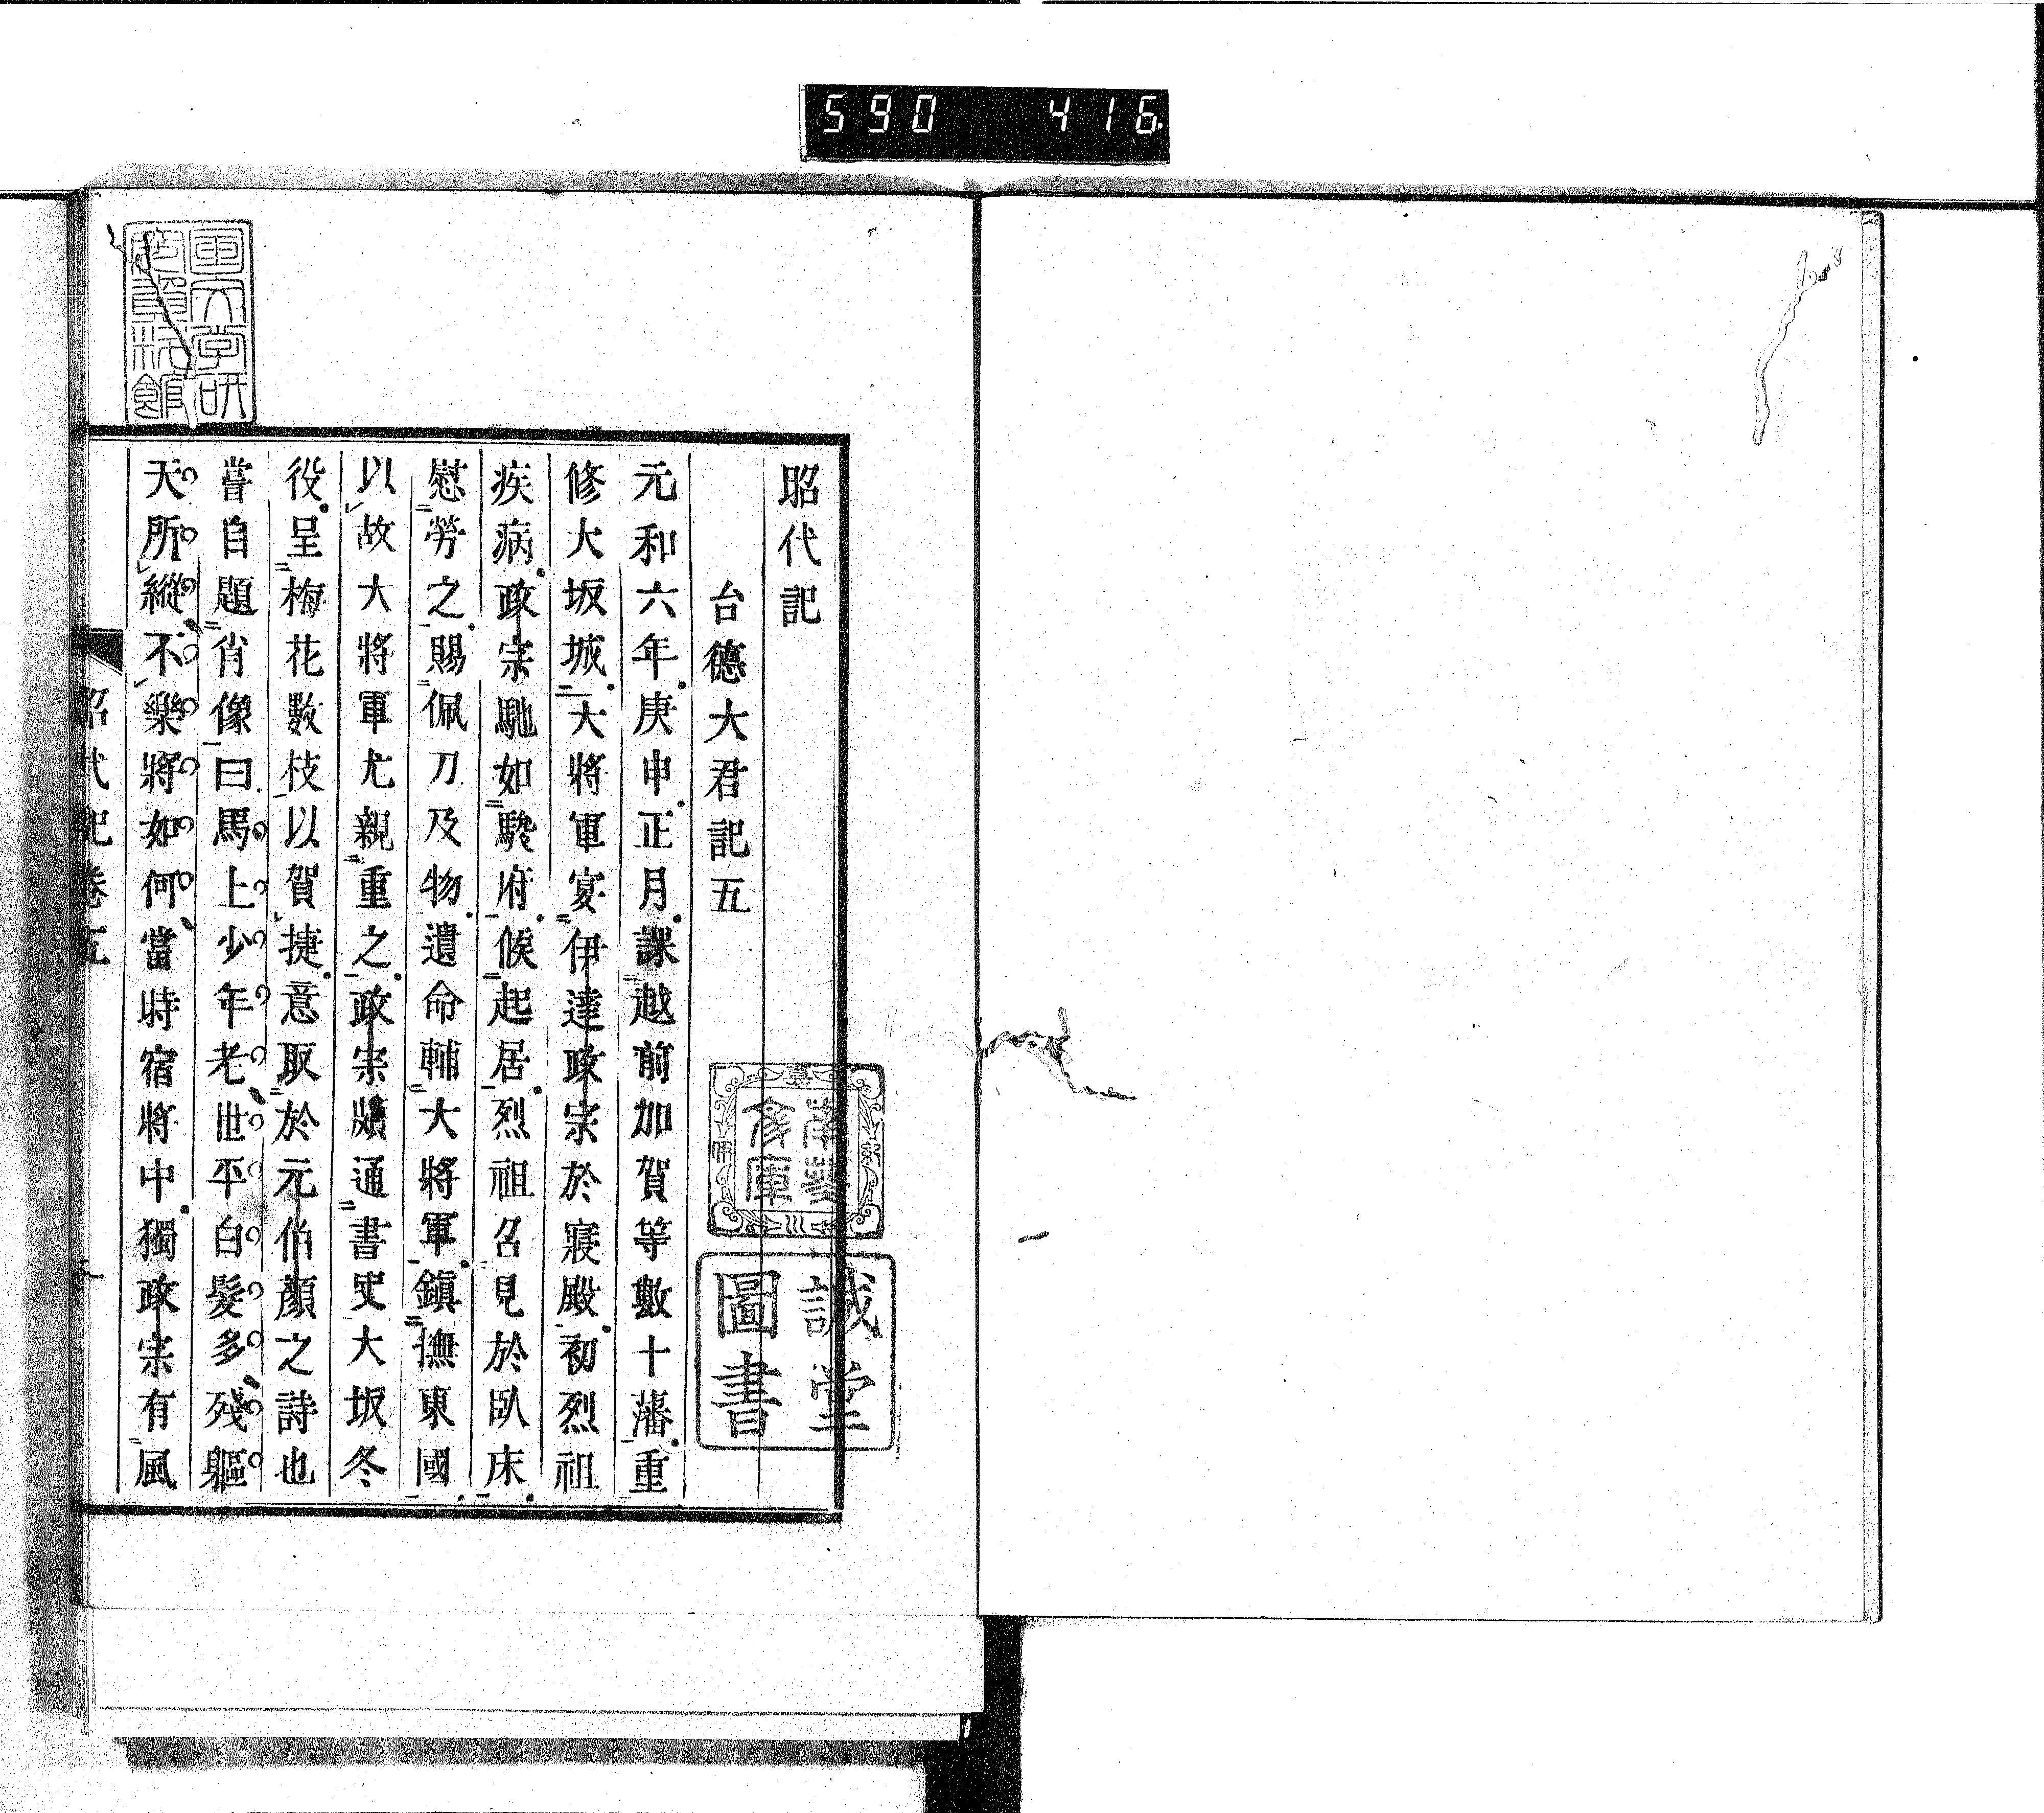 590 416
昭代記
台德大君記五
元和六年庚申正月課越前加賀等數十藩重
修大坂城大將軍宴伊達政宗於寢殿初烈祖
疾病政宗馳如駿府候起居烈祖召見於臥床
慰勞之賜佩刀及物遺命輔大將軍鎮撫東國
以故大將軍尤親重之政宗頗通書史大坂冬
役呈梅花數枝以賀捷意取於元伯顏之詩也
嘗自題肖像曰馬上少年老世平白髮多殘軀
天所縱不樂將如何當時宿將中獨政宗有風
昭代記卷五
一
誠堂
圖書